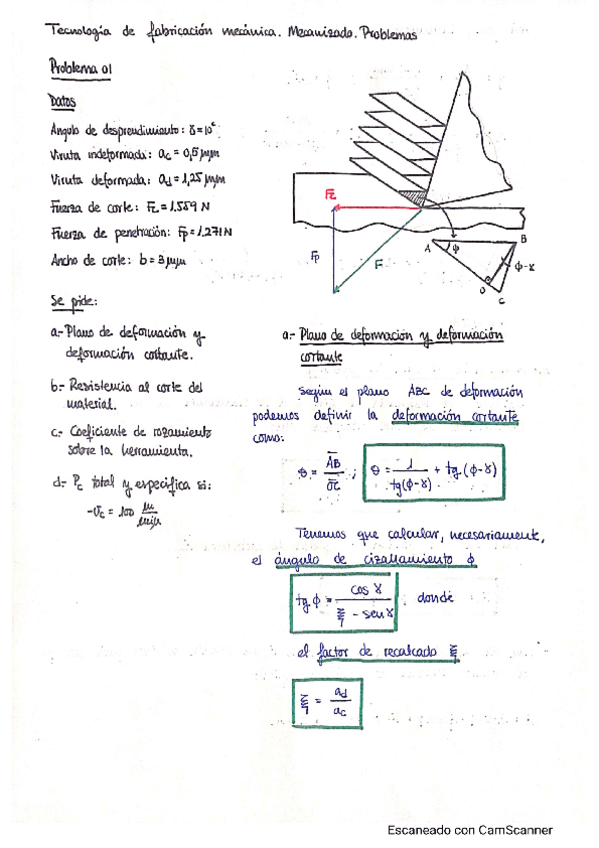 Tecnología de fabricación mecánica. Mecanizado. Problemas
Problema 01
Datos
Angulo de desprendimiento: γ = 10°
Viruta indeformada: ac = 0,5 mm
Viruta deformada: ad = 1,25 mm
Fuerza de corte: Fc = 1.559 N
Fuerza de penetración: Fp = 1.271 N
Ancho de corte: b = 3 mm
Fc
Fp
F
A
B
φ
φ-γ
O
C
Se pide:
a.- Plano de deformación y
deformación cortante.
b.- Resistencia al corte del
material.
c.- Coeficiente de rozamiento
sobre la herramienta.
d.- Pc total y específica si:
- vc = 100 m/min
a.- Plano de deformación y deformación
cortante
Según el plano ABC de deformación
podemos definir la deformación cortante
como:
θ = AB/OC ; θ = 1/tg(φ-γ) + tg(φ-γ)
Tenemos que calcular, necesariamente,
el ángulo de cizallamiento φ
tg φ = cos γ/(ξ - sen γ) donde
el factor de recalcado ξ
ξ = ad/ac
Escaneado con CamScanner